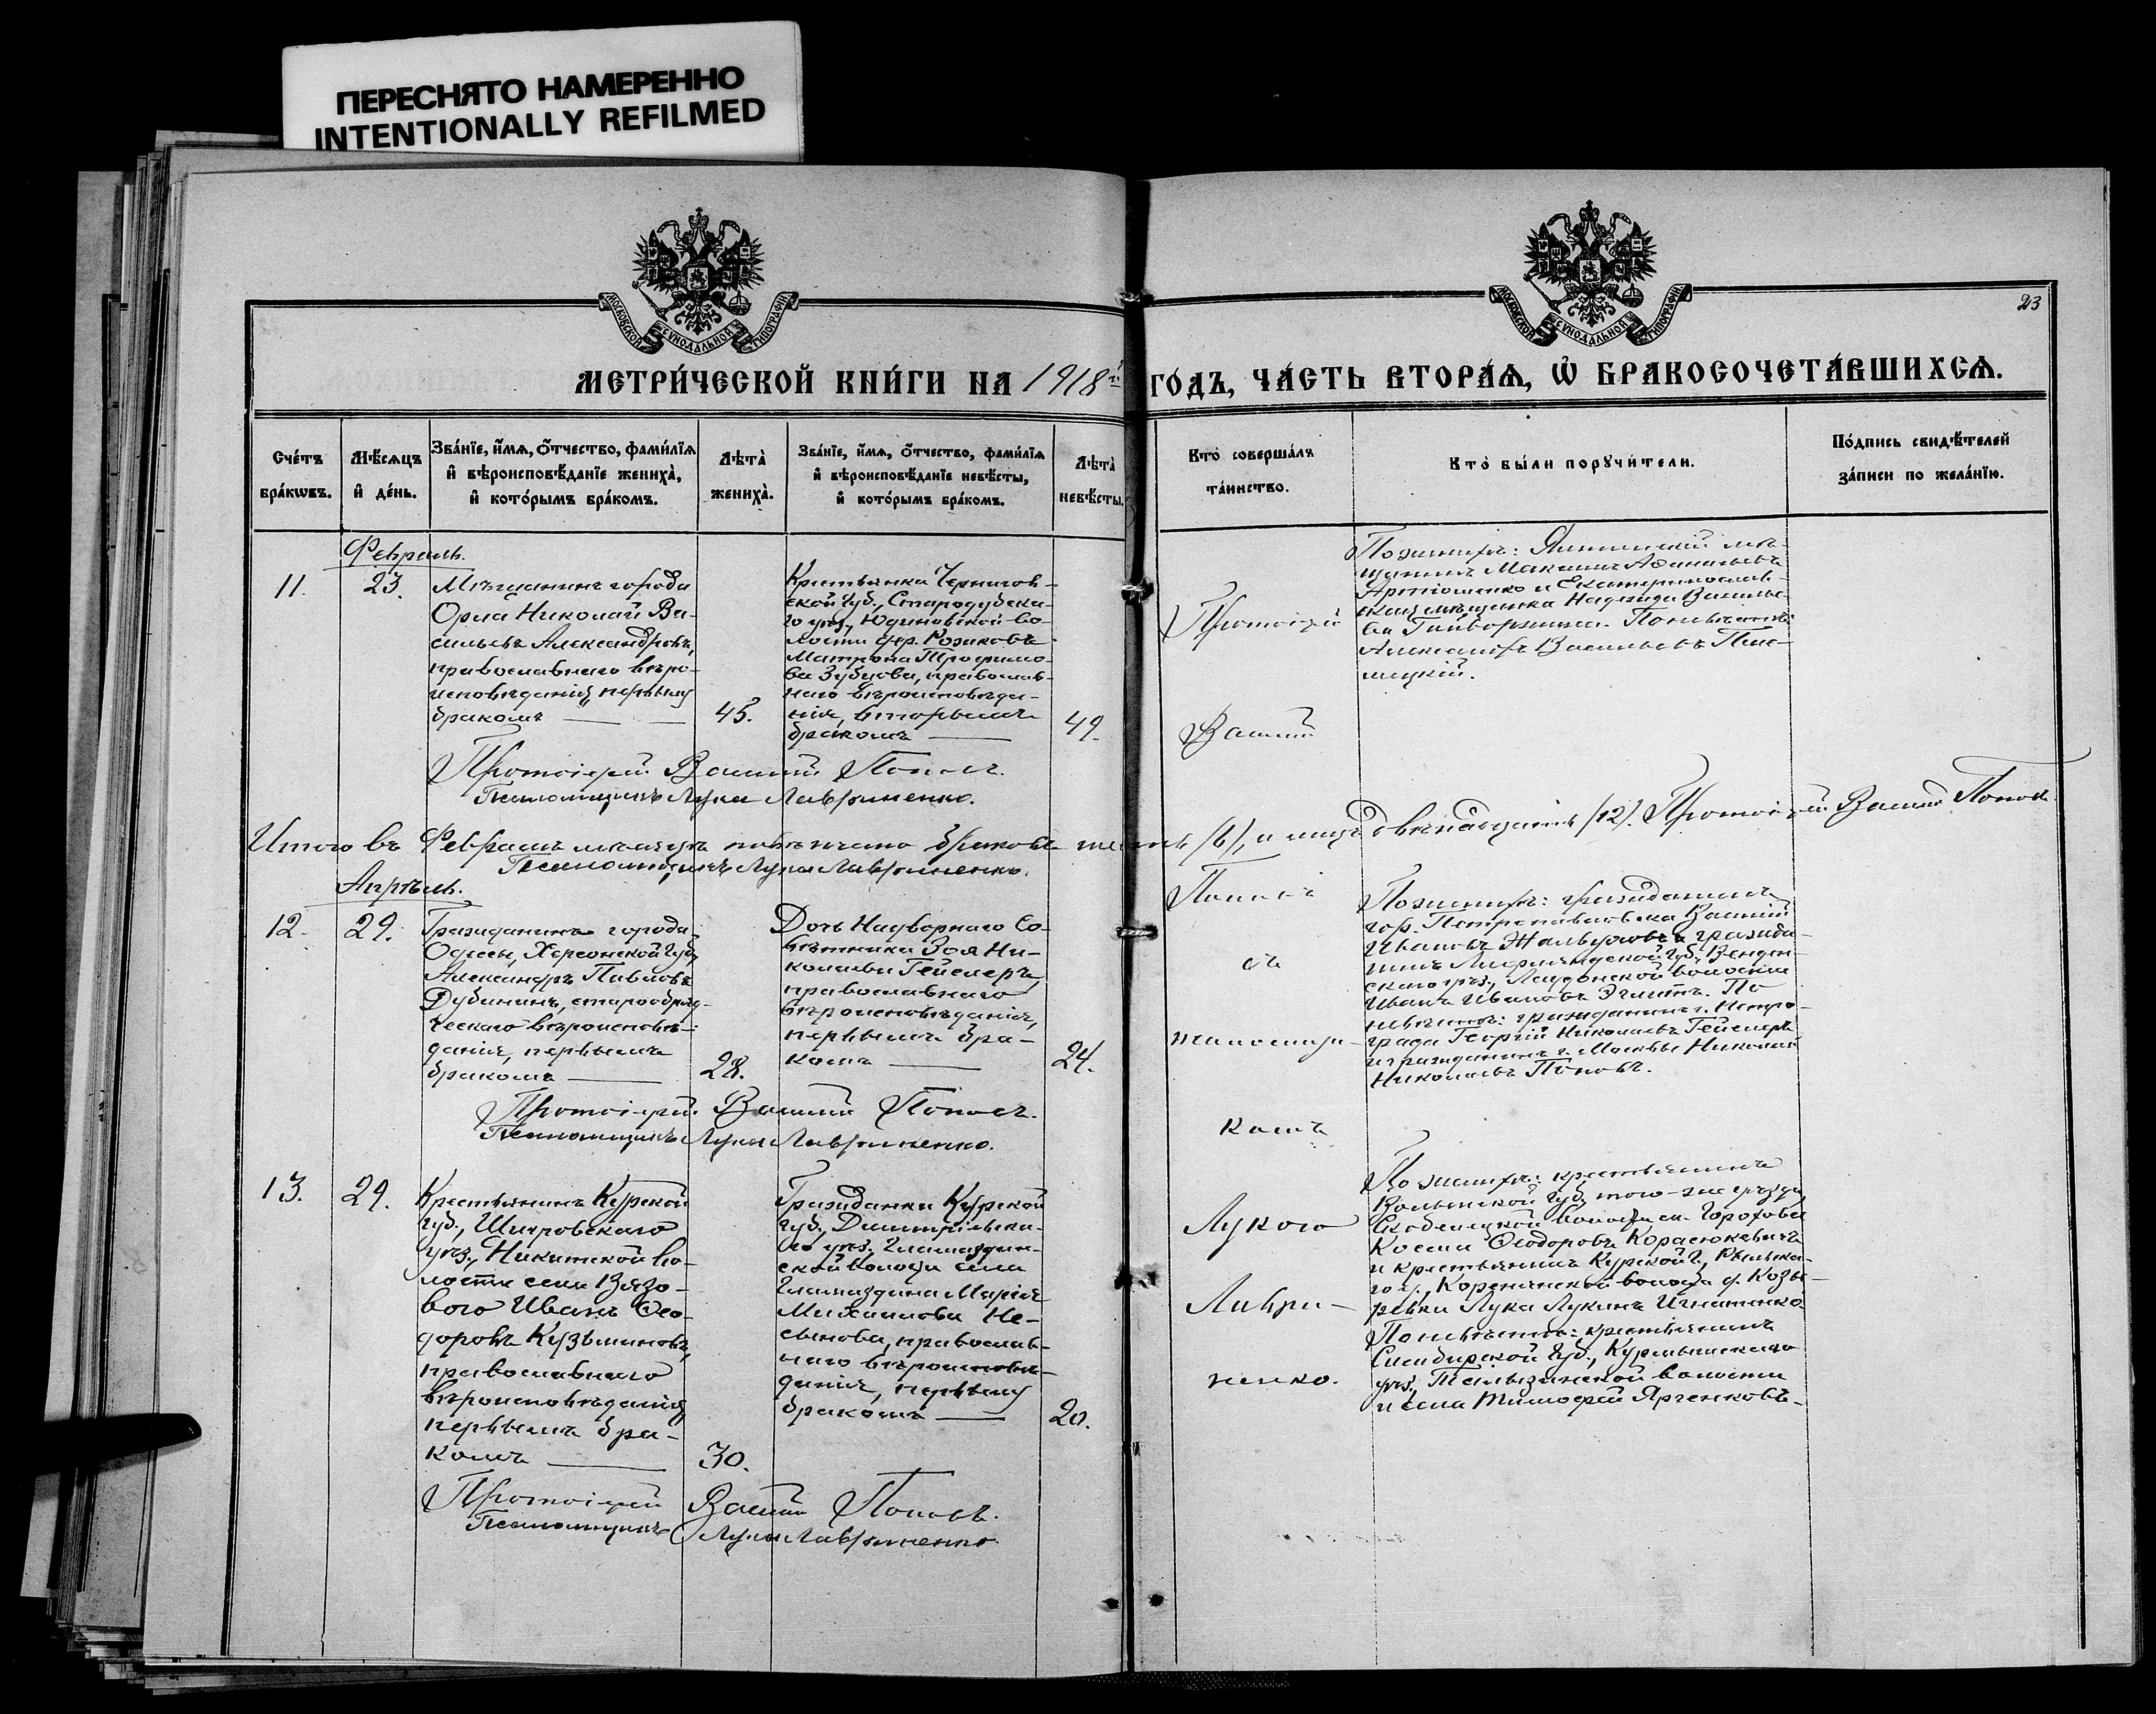 ПЕРЕСНЯТО НАМЕРЕННО
INTENTIONALLY REFILMED
МОСКОВСКОЙ СУНОДАЛЬНОЙ ТИПОГРАФІИ
МОСКОВСКОЙ СУНОДАЛЬНОЙ ТИПОГРАФІИ
23
МЕТРИ́ЧЕСКОЙ КНИ́ГИ НА 1918 г. ГО́ДЪ, ЧА́СТЬ ВТОРА́Ѧ, Ѡ БРАКОСОЧЕТА́ВШИХСѦ.
Сче́тъ
бра́кѡвъ.
Мѣ́сѧцъ
и҆ де́нь.
Зва́нїе, и҆́мѧ, о҆́тчество, фами́лїѧ
и҆ вѣроисповѣ́данїе жениха̀,
и҆ кото́рымъ бра́комъ.
Лѣта̀
жениха̀.
Зва́нїе, и҆́мѧ, о҆́тчество, фами́лїѧ
и҆ вѣроисповѣ́данїе невѣ́сты,
и҆ кото́рымъ бра́комъ.
Лѣта̀
невѣ́сты.
Кто̀ соверша́лъ
та́инство.
Кто̀ бы́ли порꙋчи́тели.
По́дпись свидѣ́телей
за́писи по жела́нїю.
Февраль.
11.
23.
Мѣщанинъ города
Орла Николай Ва-
сильевъ Александровъ,
православнаго вѣро-
исповѣданія, первымъ
бракомъ
45.
Крестьянка Чернигов-
ской губ., Стародубска-
го уѣз., Юдиновской во-
лости дер. Казиковъ
Матрона Трофимо-
ва Зубцова, православ-
наго вѣроисповѣда-
нія, вторымъ
бракомъ
49.
Протоіерей
Василій
По женихѣ: мѣ-
щанинъ Максимъ Афанасьевъ
Артюшенко и Екатеринослав-
ская мѣщанка Надежда Василье-
ва По невѣстѣ:
Александръ Васильевъ
Протоіерей Василій Поповъ.
Псаломщикъ Лука Лавриненко.
Итого въ Февралѣ мѣсяцѣ повѣнчано браковъ шесть (6), а лицъ двѣнадцать (12). Протоіерей Василій Поповъ.
Псаломщикъ Лука Лавриненко.
Апрѣль.
12.
29.
Гражданинъ города
Одессы, Херсонской губ.,
Александръ Павловъ
Дубининъ, старообряд-
ческаго вѣроисповѣ-
данія, первымъ
бракомъ
28.
Дочь Надворнаго Со-
вѣтника Зоя Ни-
колаева Гейслеръ,
православнаго
вѣроисповѣданія,
первымъ бра-
комъ
24.
Поповъ
съ
псаломщи-
комъ
По женихѣ: гражданинъ
гор. Петропавловска Василій
Ивановъ и гражда-
нинъ Лифляндской губ., Венден-
скаго уѣз., Лаудонской волости
Иванъ Ивановъ Эглитъ. По
невѣстѣ: гражданинъ г. Петро-
града Георгій Николаевъ Гейслеръ
и гражданинъ г. Москвы Николай
Николаевъ Поповъ.
Протоіерей Василій Поповъ.
Псаломщикъ Лука Лавриненко.
13.
29.
Крестьянинъ Курской
губ., Щигровскаго
уѣз., Никитской во-
лости села Вязо-
вого Иванъ Ѳео-
доровъ Кузьминовъ,
православнаго
вѣроисповѣданія,
первымъ бра-
комъ
30.
Гражданка Курской
губ., Дмитріевска-
го уѣз. Гламаздин-
ской волости села
Гламаздина Марія
Михаилова Не-
сынова, православ-
наго вѣроисповѣ-
данія, первымъ
бракомъ
20.
Лукою
Лаври-
ненко.
По женихѣ: крестьянинъ
Волынской губ., того-же уѣзда,
волости с. Гороховъ
Косма Ѳеодоровъ Корасюкевичъ
и крестьянинъ Курской г., Рыльска-
го у., Кореневской волости д. Козы-
ревки Лука Лукинъ Игнатенко.
По невѣстѣ: крестьянинъ
Симбирской губ., Курмышскаго
уѣз., волости
и села Тимофей Ярченковъ.
Протоіерей Василій Поповъ.
Псаломщикъ Лука Лавриненко